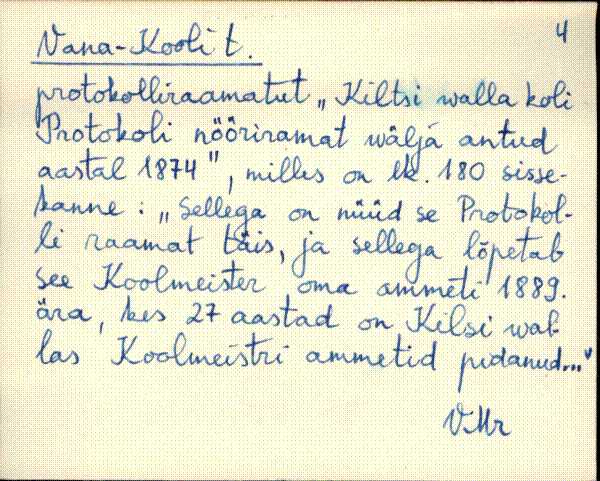 4
Vana-Kooli t.
protokolliraamatut „Kiltsi walla koli
Protokoli nööriramat wäljä antud
aastal 1874", milles on lk. 180 sisse-
kanne: „Sellega on nüüd se Protokol-
li raamat täis, ja sellega lõpetab
see Koolmeister oma ammeti 1889.
ära, kes 27 aastad on Kilsi wal-
las Koolmeistri ammetid pidanud..."
V.Mr